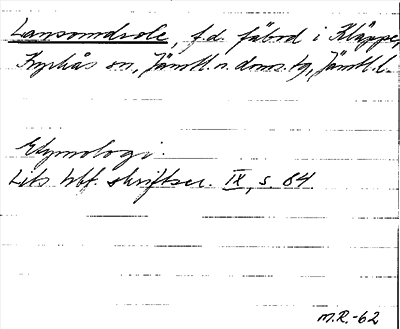 Lansomdvole, f.d. fäbod i Kläppe,
Kyrkås sn, Jämtl. n. doms. tg, Jämtl. l.
Etymologi.
Lits hbf. skriftser. IX, s. 84
M.R.-62